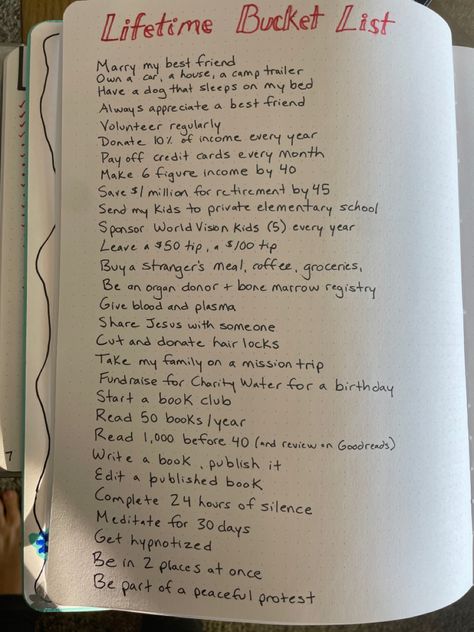 Lifetime Bucket List
Marry my best friend
Own a car, a house, a camp trailer
Have a dog that sleeps on my bed
Always appreciate a best friend
Volunteer regularly
Donate 10% of income every year
Pay off credit cards every month
Make 6 figure income by 40
Save $1 million for retirement by 45
Send my kids to private elementary school
Sponsor World Vision Kids (5) every year
Leave a $50 tip, a $100 tip
Buy a stranger's meal, coffee, groceries,
Be an organ donor + bone marrow registry
Give blood and plasma
Share Jesus with someone
Cut and donate hair locks
Take my family on a mission trip
Fundraise for Charity Water for a birthday
Start a book club
Read 50 books/year
Read 1,000 before 40 (and review on Goodreads)
Write a book, publish it
Edit a published book
Complete 24 hours of silence
Meditate for 30 days
Get hypnotized
Be in 2 places at once
Be part of a peaceful protest
7